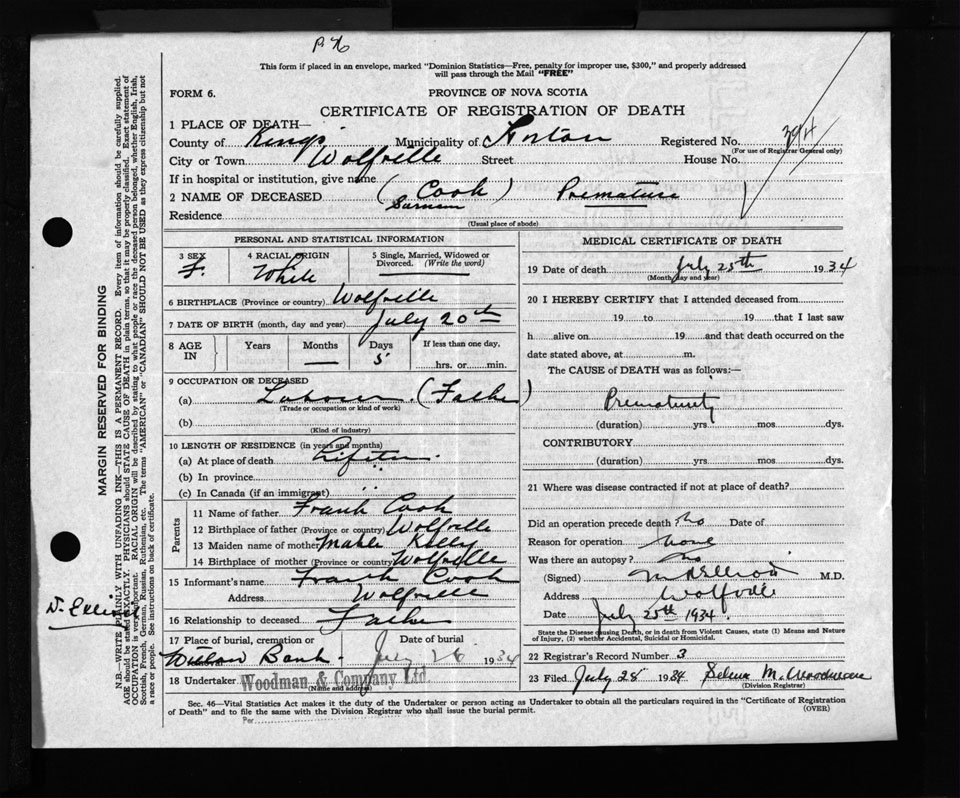 This form if placed in an envelope, marked "Dominion Statistics—Free, penalty for improper use, $300," and properly addressed
will pass through the Mail "FREE"
FORM 6.
PROVINCE OF NOVA SCOTIA
CERTIFICATE OF REGISTRATION OF DEATH
1 PLACE OF DEATH—
County of Kings Municipality of Horton Registered No.
(For use of Registrar General only)
City or Town Wolfville Street House No.
If in hospital or institution, give name
2 NAME OF DECEASED (Cook) Premature
Surname
Residence
(Usual place of abode)
PERSONAL AND STATISTICAL INFORMATION
3 SEX 4 RACIAL ORIGIN 5 Single, Married, Widowed or Divorced. (Write the word)
F. White
6 BIRTHPLACE (Province or country) Wolfville
7 DATE OF BIRTH (month, day and year) July 20th
8 AGE IN Years Months Days If less than one day,
— 5 hrs. or min.
9 OCCUPATION OF DECEASED
(a) Labourer (Father)
(Trade or occupation or kind of work)
(b)
(Kind of industry)
10 LENGTH OF RESIDENCE (in years and months)
(a) At place of death Lifetime
(b) In province " "
(c) In Canada (if an immigrant) " "
Parents
11 Name of father Frank Cook
12 Birthplace of father (Province or country) Wolfville
13 Maiden name of mother Mable Kelly
14 Birthplace of mother (Province or country) Wolfville
15 Informant's name Frank Cook
Address Wolfville
16 Relationship to deceased Father
17 Place of burial, cremation or Date of burial
Willow Bank. July 26 1934
18 Undertaker Woodman & Company Ltd
(Name and address)
MEDICAL CERTIFICATE OF DEATH
19 Date of death July 25th 1934
(Month, day and year)
20 I HEREBY CERTIFY that I attended deceased from
19 to 19 that I last saw
h alive on 19 and that death occurred on the
date stated above, at m.
The CAUSE of DEATH was as follows:—
Prematurity
(duration) yrs mos dys.
CONTRIBUTORY
(duration) yrs mos dys.
21 Where was disease contracted if not at place of death?
Did an operation precede death? No Date of
Reason for operation None
Was there an autopsy? No
(Signed) M.D.
Address Wolfville
Date July 25th 1934.
State the Disease causing Death, or in death from Violent Causes, state (1) Means and Nature
of Injury, (2) whether Accidental, Suicidal or Homicidal.
22 Registrar's Record Number 3
23 Filed July 28 1934
(Division Registrar)
Sec. 46—Vital Statistics Act makes it the duty of the Undertaker or person acting as Undertaker to obtain all the particulars required in the "Certificate of Registration
of Death" and to file the same with the Division Registrar who shall issue the burial permit.
(OVER)
Per
MARGIN RESERVED FOR BINDING
N.B.—WRITE PLAINLY WITH UNFADING INK—THIS IS A PERMANENT RECORD. Every item of information should be carefully supplied.
AGE should be stated EXACTLY. PHYSICIANS should STATE CAUSE OF DEATH in plain terms, so that it may be properly classified. Exact statement of
OCCUPATION is very important. RACIAL ORIGIN will be described by stating to what people or race the deceased person belonged, whether English, Irish,
Scottish, French, German, Russian, Ruthenian, etc. The terms "AMERICAN" or "CANADIAN" SHOULD NOT BE USED as they express citizenship but not
a race or people. See instructions on back of certificate.